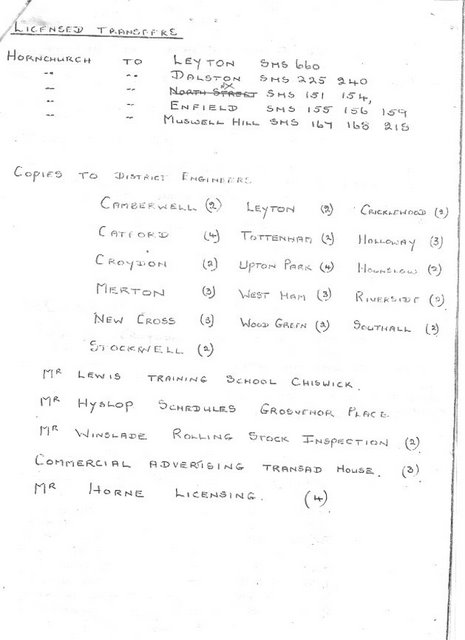 LICENSED TRANSFERS
HORNCHURCH TO LEYTON SMS 660
" " DALSTON SMS 225 240
" " NORTH STREET NX SMS 151 154,
" " ENFIELD SMS 155 156 159
" " MUSWELL HILL SMS 167 168 218
COPIES TO DISTRICT ENGINEERS
CAMBERWELL (2) LEYTON (2) CRICKLEWOOD (2)
CATFORD (4) TOTTENHAM (2) HOLLOWAY (3)
CROYDON (2) UPTON PARK (4) HOUNSLOW (2)
MERTON (3) WEST HAM (3) RIVERSIDE (2)
NEW CROSS (3) WOOD GREEN (3) SOUTHALL (2)
STOCKWELL (2)
MR LEWIS TRAINING SCHOOL CHISWICK.
MR HYSLOP SCHEDULES GROSVENOR PLACE
MR WINSLADE ROLLING STOCK INSPECTION (2)
COMMERCIAL ADVERTISING TRANSAD HOUSE. (3)
MR HORNE LICENSING. (4)